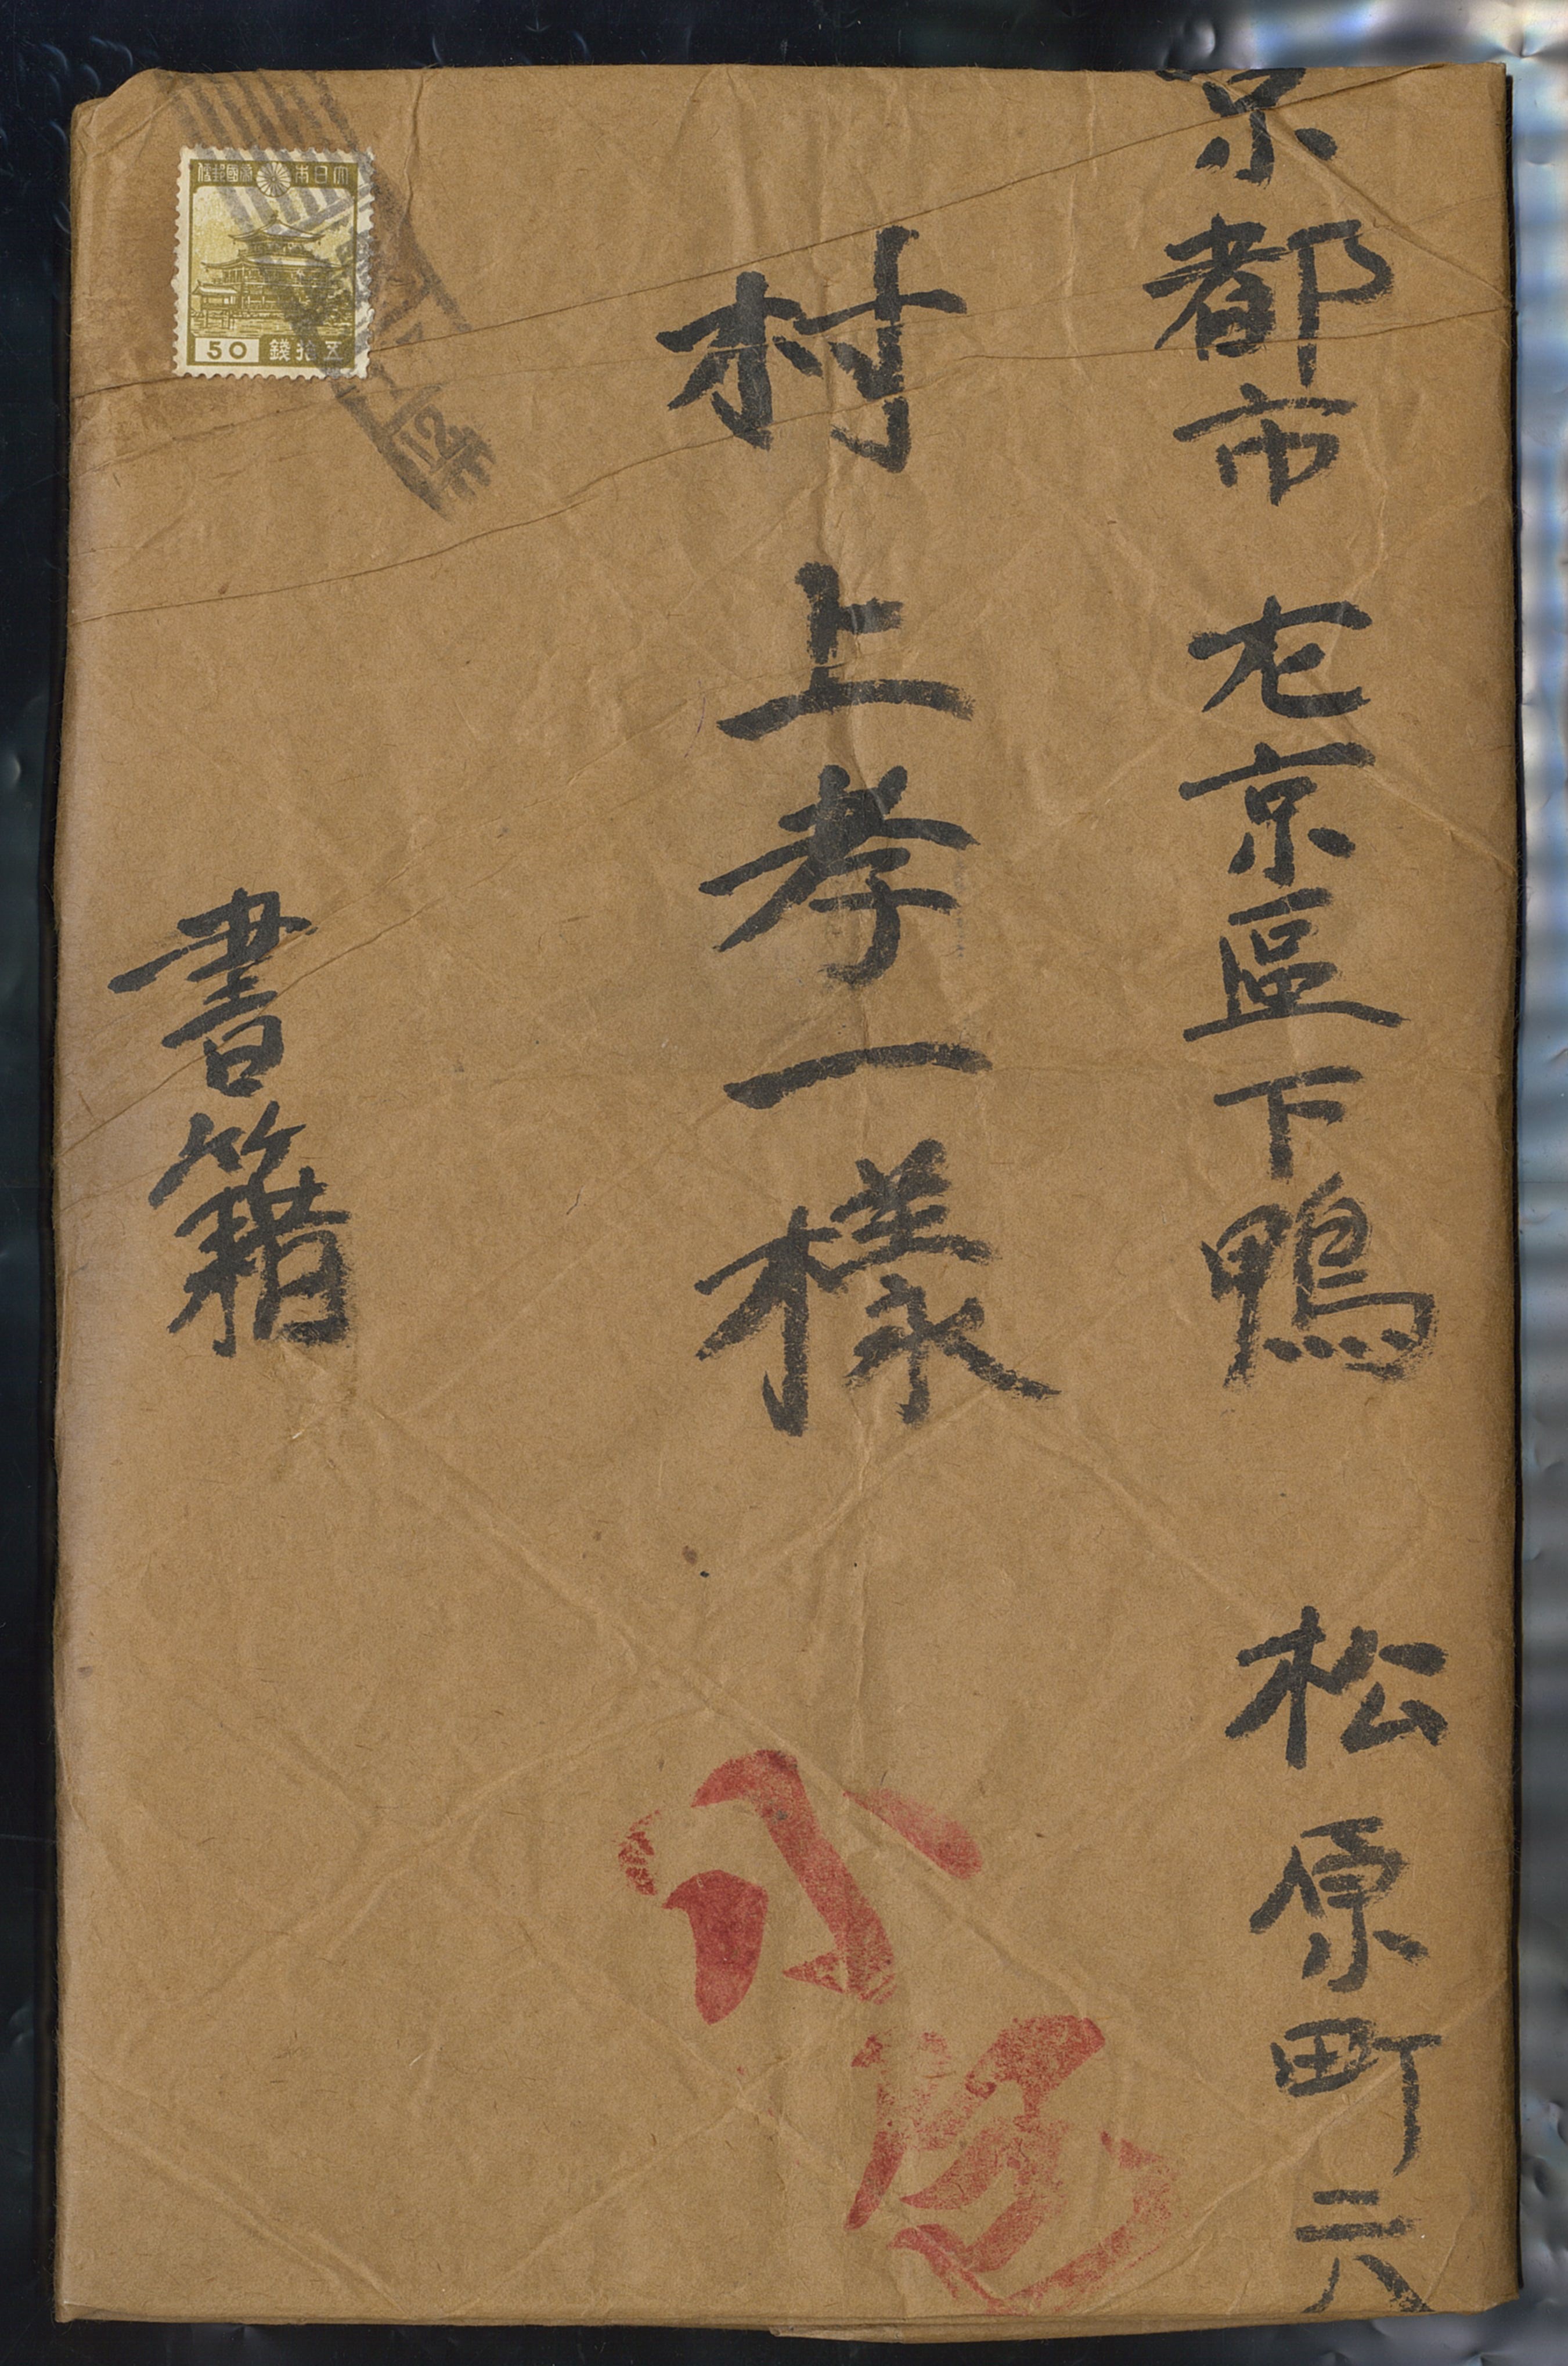 京都市左京區下鴨 松原町三八
村上孝一樣
書籍
大日本帝國郵便
50 五拾錢
小包